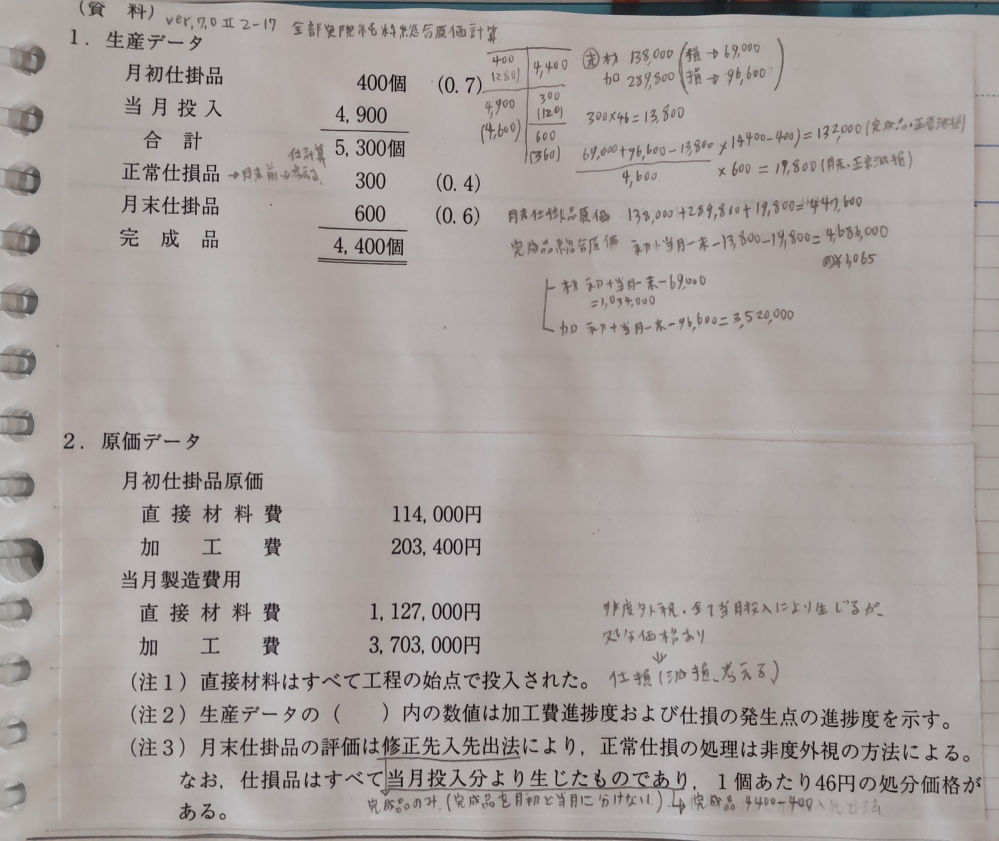 （資 料） ver,7,0 Ⅱ 2-17 全部実際純粋総合原価計算
1．生産データ
月初仕掛品 400個 (0.7)
当月投入 4,900
合計 5,300個
仕計算
正常仕損品 →月末前 300 (0.4)
月末仕掛品 600 (0.6)
完成品 4,400個
400 4,400
(280)
4,900 300
(4,600) (120)
600
(360)
末 材 138,000 (損→69,000
加 289,800 (損→96,600)
300×46=13,800
69,000+96,600-13,800 / 4,600 ×(4400-400)=132,000 (完成品・正常減損)
×600=19,800 (月末・正常減損)
月末仕掛品原価 138,000+289,800+19,800=447,600
完成品総合原価 初+当月-末-13,800-19,800=4,686,000
@¥1,065
材 初+当月-末-69,000
=1,034,000
加 初+当月-末-96,600=3,520,000
2．原価データ
月初仕掛品原価
直接材料費 114,000円
加工費 203,400円
当月製造費用
直接材料費 1,127,000円
加工費 3,703,000円
非度外視、全て当月投入により生じるが、
処分価格あり
↓
仕損(減損、考える)
（注1）直接材料はすべて工程の始点で投入された。
（注2）生産データの（ ）内の数値は加工費進捗度および仕損の発生点の進捗度を示す。
（注3）月末仕掛品の評価は修正先入先出法により，正常仕損の処理は非度外視の方法による。
なお，仕損品はすべて当月投入分より生じたものであり，1個あたり46円の処分価格が
ある。
完成品のみ.(完成品を月初と当月に分けない.) → 完成品 4400-400 入先出法